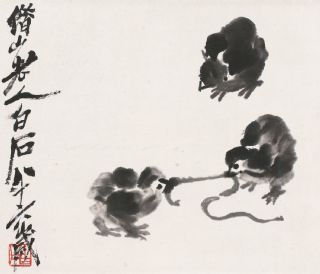 借山老人白石八十六歲